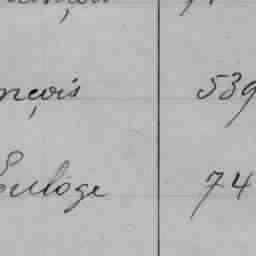 nçois 539
Euloge 74